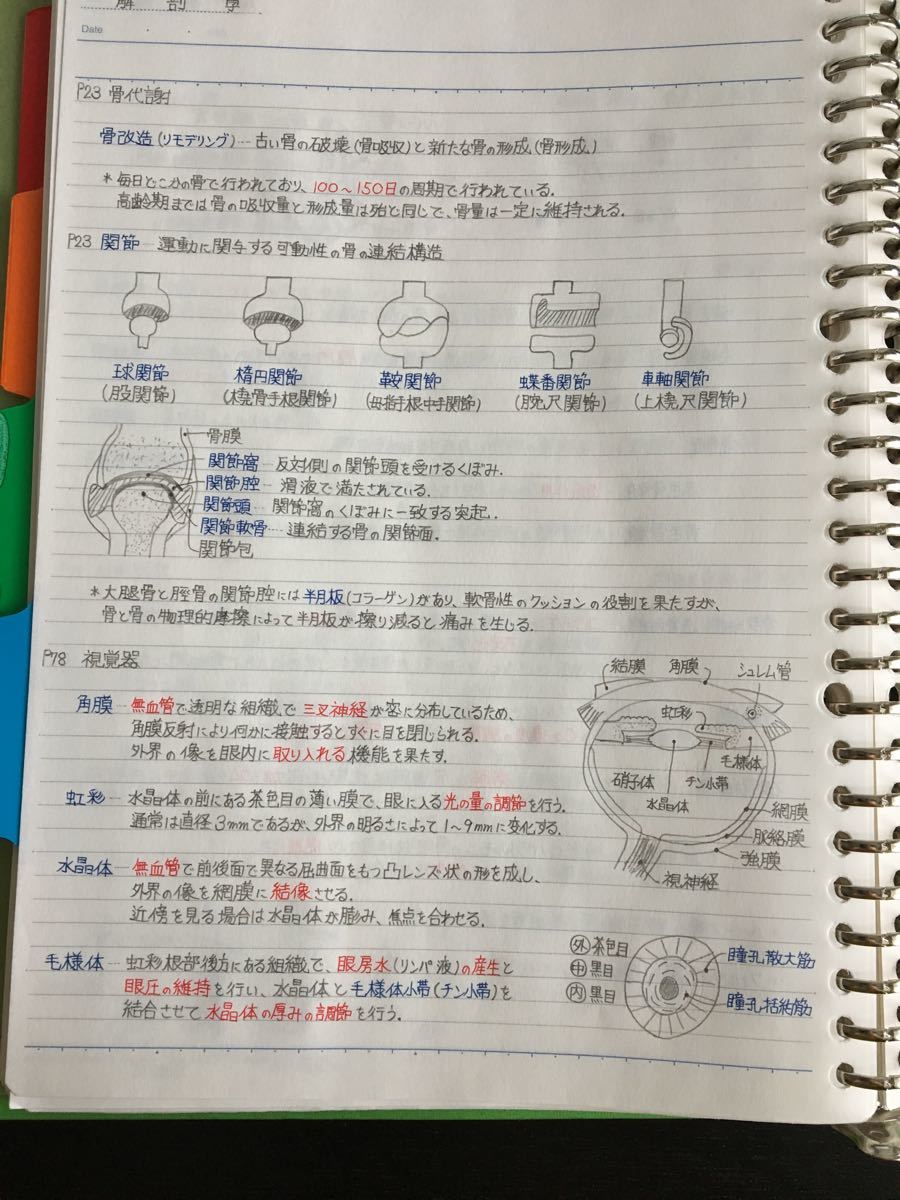 解剖学
Date
P23 骨代謝
骨改造(リモデリング)…古い骨の破壊(骨吸収)と新たな骨の形成(骨形成)
*毎日どこかの骨で行われており、100〜150日の周期で行われている。
高齢期までは骨の吸収量と形成量は殆と同じで、骨量は一定に維持される。
P23 関節…運動に関与する可動性の骨の連結構造
球関節 楕円関節 鞍関節 蝶番関節 車軸関節
(股関節) (橈骨手根関節) (母指手根中手関節) (腕尺関節) (上橈尺関節)
骨膜
関節窩…反対側の関節頭を受けるくぼみ.
関節腔…滑液で満たされている.
関節頭…関節窩のくぼみに一致する突起.
関節軟骨…連結する骨の関節面.
関節包
*大腿骨と脛骨の関節腔には半月板(コラーゲン)があり、軟骨性のクッションの役割を果たすが、
骨と骨の物理的摩擦によって半月板が擦り減ると痛みを生じる.
P78 視覚器
角膜…無血管で透明な組織で三叉神経が密に分布しているため、
角膜反射により何かに接触するとすぐに目を閉じられる.
外界の像を眼内に取り入れる機能を果たす.
虹彩…水晶体の前にある茶色目の薄い膜で、眼に入る光の量の調節を行う.
通常は直径3mmであるが、外界の明るさによって1〜9mmに変化する.
水晶体…無血管で前後面で異なる屈曲面をもつ凸レンズ状の形を成し、
外界の像を網膜に結像させる.
近傍を見る場合は水晶体が膨み、焦点を合わせる.
毛様体…虹彩根部後方にある組織で、眼房水(リンパ液)の産生と
眼圧の維持を行い、水晶体と毛様体小帯(チン小帯)を
結合させて水晶体の厚みの調節を行う.
結膜 角膜 シュレム管
虹彩
毛様体
硝子体 チン小帯
水晶体
網膜
脈絡膜
強膜
視神経
外 茶色目
中 黒目
内 黒目
瞳孔散大筋
瞳孔括約筋